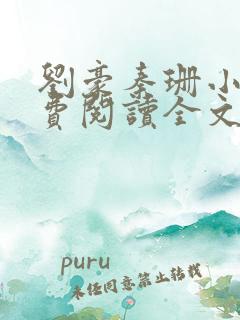 劉豪秦珊小
費閱讀全文
puru
未经同意禁止转载